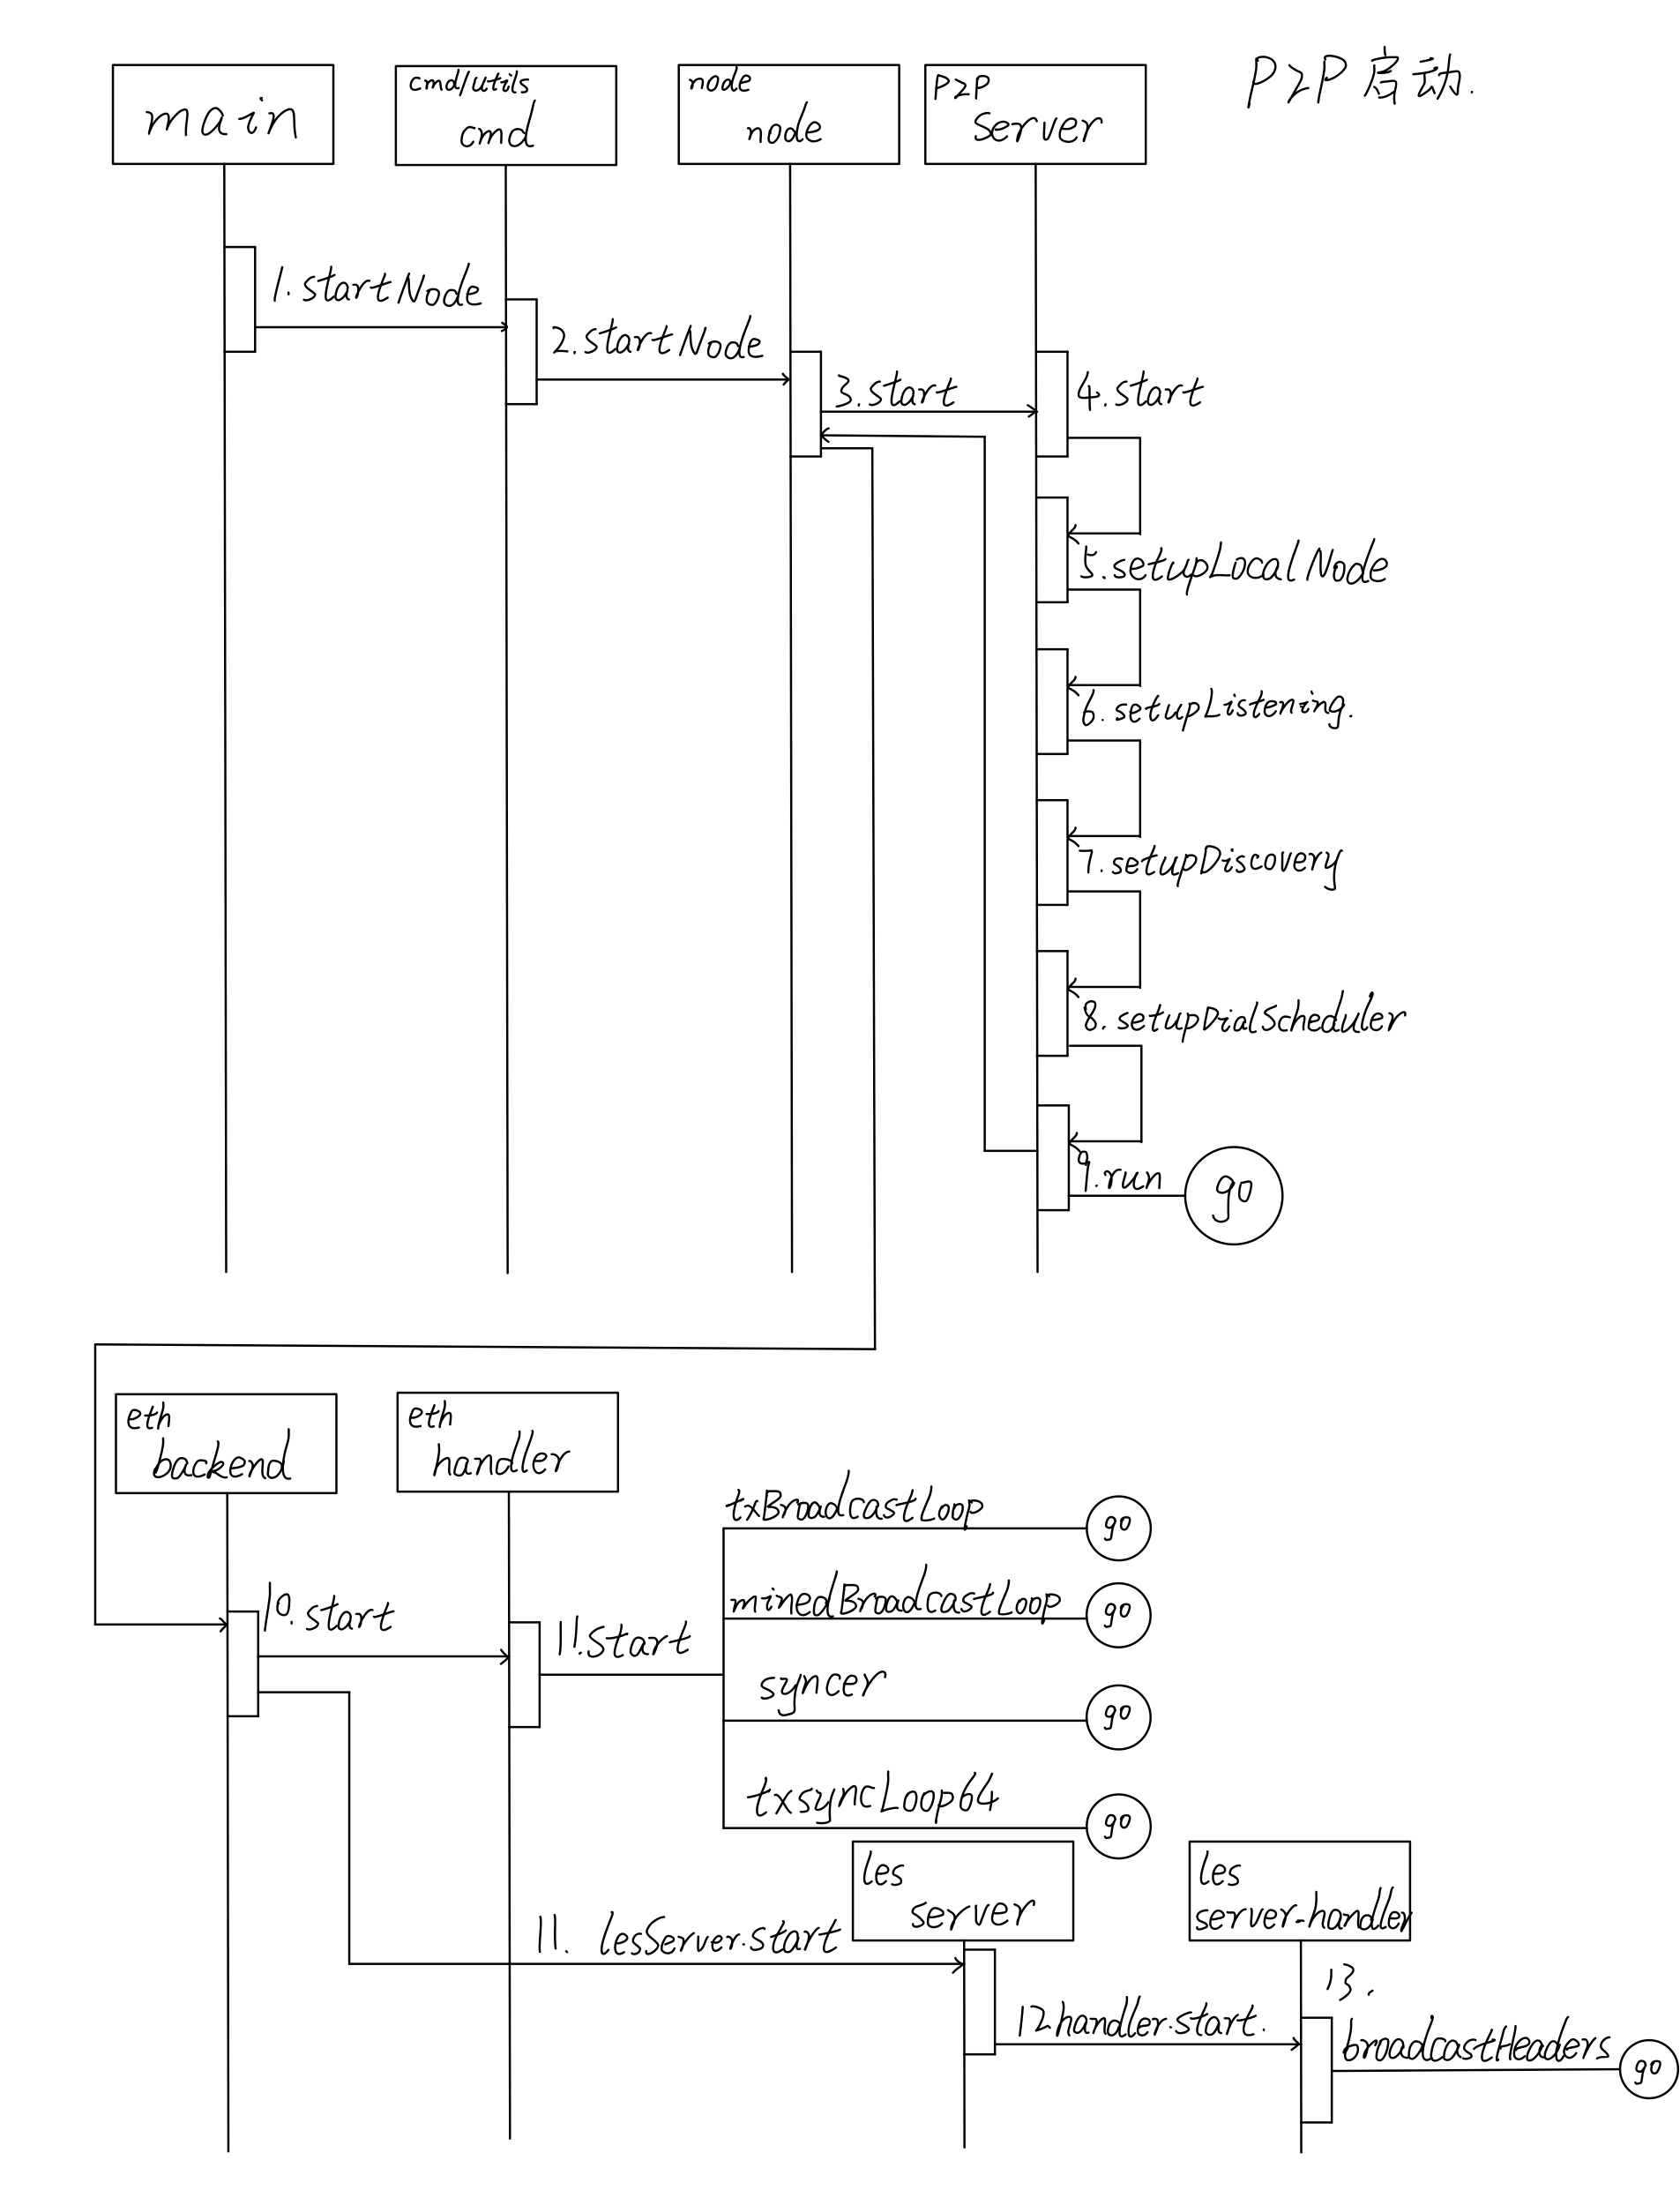 P2P 启动.
main
cmd/utils
cmd
node
node
P2P
Server
1.startNode
2.startNode
3.start
4.start
5.setupLocalNode
6.setupListening.
7.setupDiscovery
8.setupDialScheduler
9.run
go
eth
backend
eth
handler
txBroadcastLoop
go
minedBroadcastLoop
go
10.start
11.Start
syncer
go
txsyncLoop64
go
les
server
les
server-handler
11. lesServer.start
12handler.start.
13.
broadcastHeaders
go